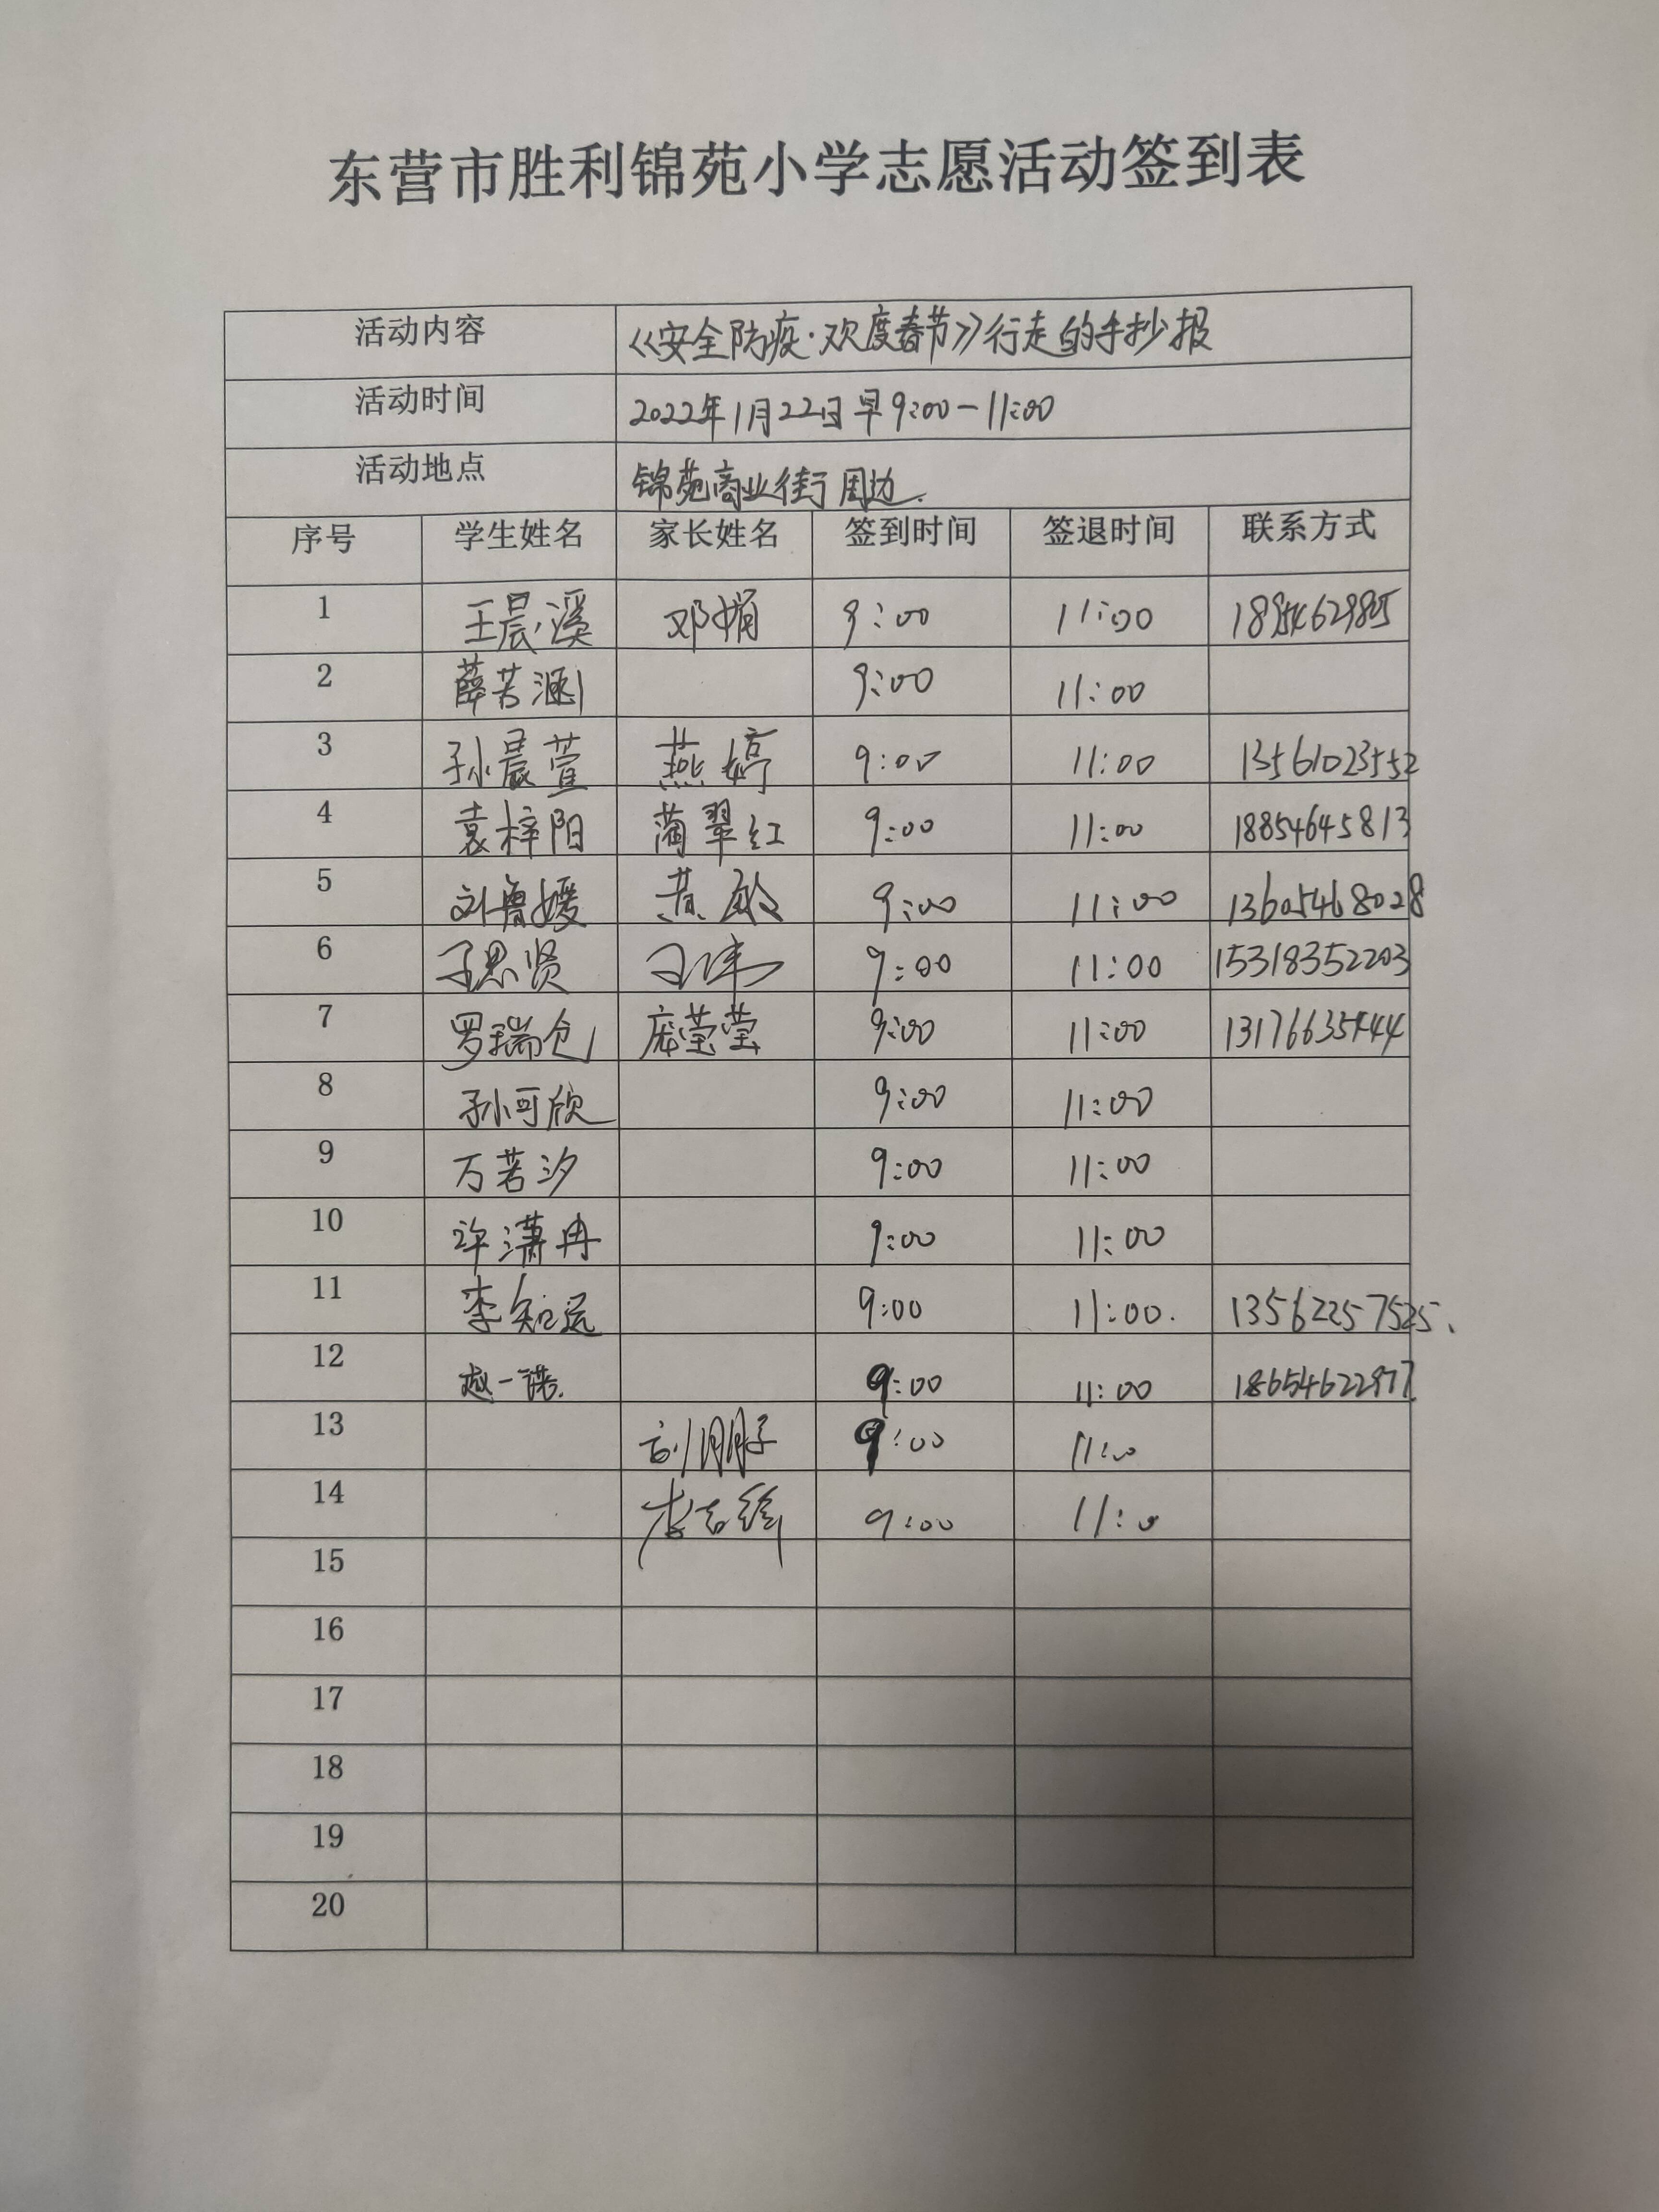 东营市胜利锦苑小学志愿活动签到表
活动内容 《安全防疫·欢度春节》行走的手抄报
活动时间 2022年1月22日早9:00-11:00
活动地点 锦苑商业街周边.
序号 学生姓名 家长姓名 签到时间 签退时间 联系方式
1 王晨溪 邓娟 9:00 11:00
2 薛若涵 9:00 11:00
3 孙晨萱 燕婷 9:00 11:00 13561023552
4 袁梓阳 蔺翠红 9:00 11:00 18854645813
5 刘鲁媛 黄敏 9:00 11:00 13605468028
6 王思贤 王伟 9:00 11:00 15318352203
7 罗瑞仓 庞莹莹 9:00 11:00
8 孙可欣 9:00 11:00
9 万若汐 9:00 11:00
10 许潇冉 9:00 11:00
11 李知远 9:00 11:00. 13562257525.
12 赵一诺. 9:00 11:00
13 9:00 11:00
14 9:00 11:00
15
16
17
18
19
20